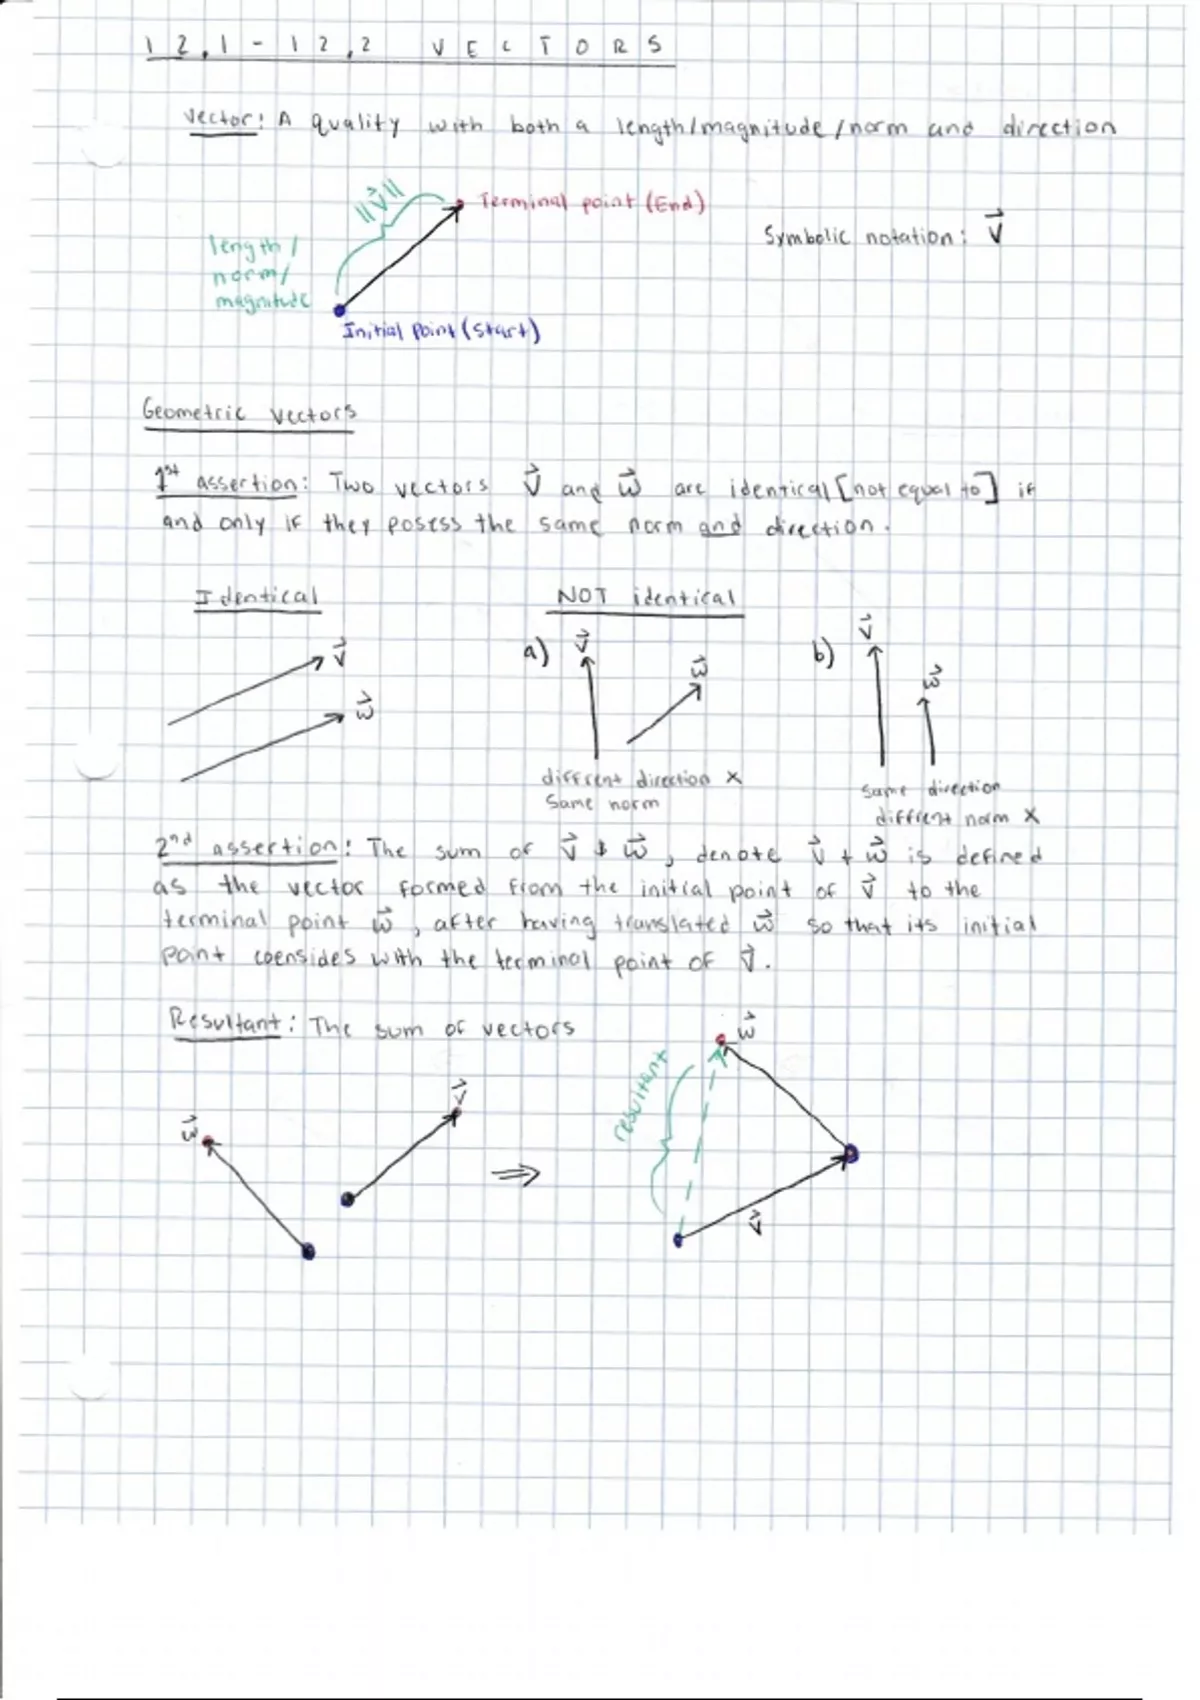 12.1 - 12.2 VECTORS
Vector: A quality with both a length/magnitude/norm and direction
||v⃗||
Terminal point (End)
Symbolic notation: v⃗
length/
norm/
magnitude
Initial Point (Start)
Geometric vectors
1st assertion: Two vectors v⃗ and w⃗ are identical [not equal to] if
and only if they posess the same norm and direction.
Identical
NOT identical
v⃗
w⃗
a) v⃗
w⃗
b) v⃗
w⃗
diffrent direction x
Same norm
Same direction
diffrent norm x
2nd assertion: The sum of v⃗ & w⃗, denote v⃗ + w⃗ is defined
as the vector formed from the initial point of v⃗ to the
terminal point w⃗, after having translated w⃗ so that its initial
point coensides with the terminal point of v⃗.
Resultant: The sum of vectors
w⃗
v⃗
⇒
resultant
w⃗
v⃗